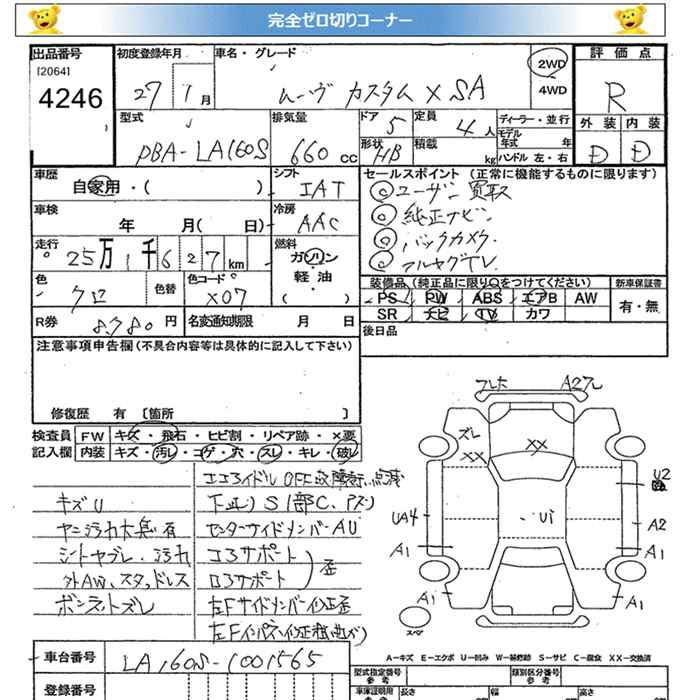 完全ゼロ切りコーナー
出品番号 初度登録年月 車名・グレード 2WD 評価点
[2064]
4246 27 1月 ムーヴ カスタム X SA 4WD R
型式 排気量 ドア 5 定員 4人 ディーラー・並行 外装 内装
モデル年式 年
DBA-LA160S 660cc 形状 HB 積載 kg ハンドル 左・右 D D
車歴 自家用・( ) シフト IAT セールスポイント (正常に機能するものに限ります)
◎ユーザー買取
車検 年 月( 日) 冷房 AAC ◎純正ナビ
◎バックカメラ
走行 25万1千627km 燃料 ガソリン・軽油・( ) ◎フルセグTV
色 クロ 色替 色コード X07 装備品(純正品に限り○をつけてください) 新車保証書
PS PW ABS エアB AW 有・無
SR ナビ TV カワ
R券 8780円 名変通知期限 月 日 後日品
注意事項申告欄(不具合内容等は具体的に記入して下さい)
修復歴 有 [箇所 ]
検査員 FW キズ・飛石・ヒビ割・リペア跡・×要
記入欄 内装 キズ・汚レ・コゲ・穴・スレ・キレ・破レ
エコアイドルOFF故障 点滅
キズU 下廻りS1部C、アスリ
ヤニ汚れ大臭有 センターサイドメンバーAU
シートヤブレ・汚れ コアサポート
歪
外AW、スタッドレス ロアサポート
ボンネットズレ 左Fサイドメンバー修正歪
左Fインパネ修正
フレ木 A27L
ズレ
XX XX
U2
UA4 Ui A2
A1 A1
A1 A1
スペア
A-キズ E-エクボ U-凹み W-補修跡 S-サビ C-腐食 XX-交換済
車台番号 LA160S-1001565
登録番号
型式指定番号 参考 類別区分番号 参考
車庫証明用 参考 長さ 幅 高さ